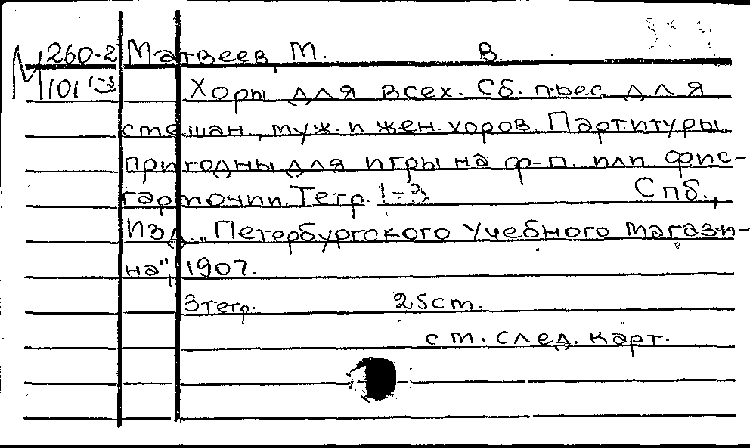 М 260-2 Матвеев, М. В.
101 1-3 Хоры для всех. Сб. пьес для
смешан., муж. и жен. хоров. Партитуры
пригодны для игры на ф-п. или фис-
гармонии. Тетр. 1-3 Спб.,
Изд. „Петербургского Учебного магази-
на", 1907.
3 тетр. 25 cm.
см. след. карт.